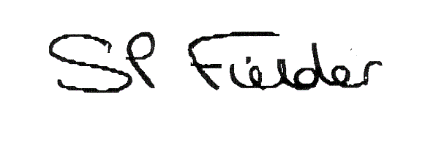 SP Fielder